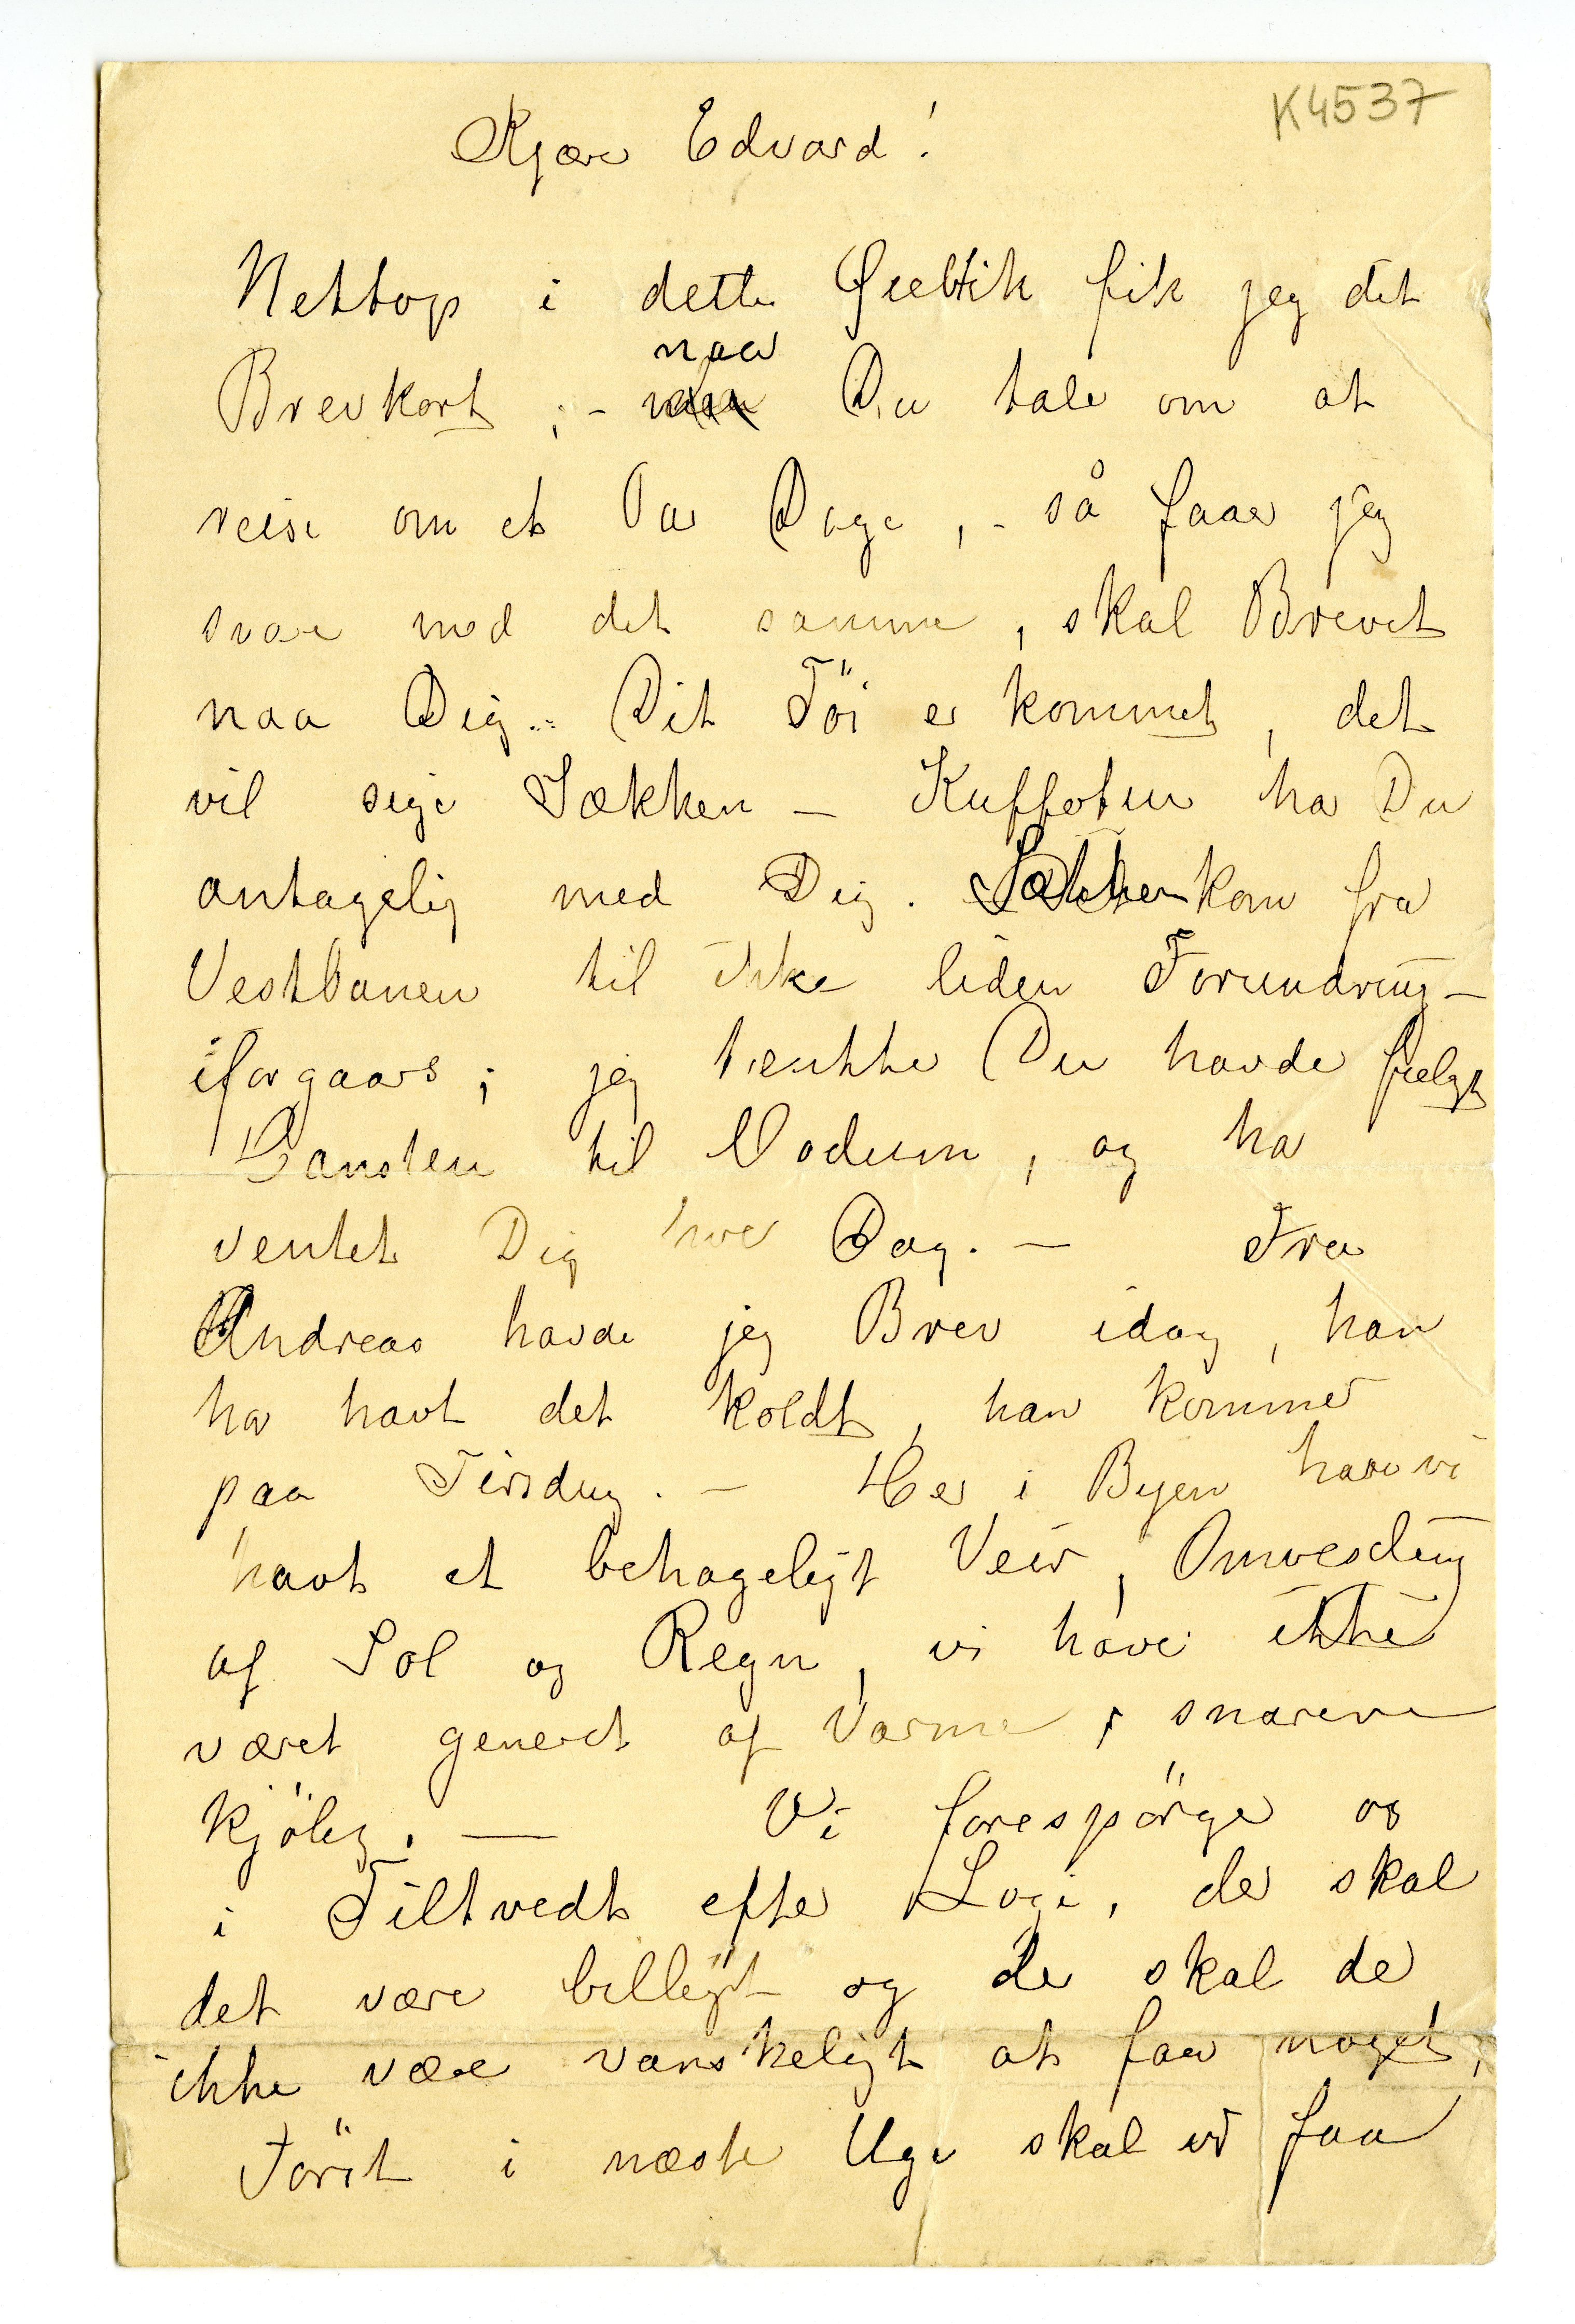 K4537
Kjære Edvard!
Nettop i dette Øieblik fik jeg dit
naar
Brevkort ;- Du taler om at
reise om et Par Dage, - så faar jeg
svare med det samme, skal Brevet
naa Dig.- Dit Töi er kommet, det
vil sige Sækken – Kufferten har Du
antagelig med Dig. Sækken kom fra
Vestbanen til ikke liden Forundring –
iforgaars; jeg tænkte Du havde fulgt
til Modum, og har
ventet Dig hver Dag. – Fra
Andreas havde jeg Brev idag, han
har havt det koldt, han kommer
paa Tirsdag. – Her i Byen have vi
havt et behageligt Veir, Omvexling
af Sol og Regn, vi have ikke
været generet af Varme, snarere
kjölig. — Vi forespörge os
i Filtvedt efter Logi, der skal
det være billigt og der skal de
ikke være vanskeligt at faa noget,
Först i næste Uge skal vi faa